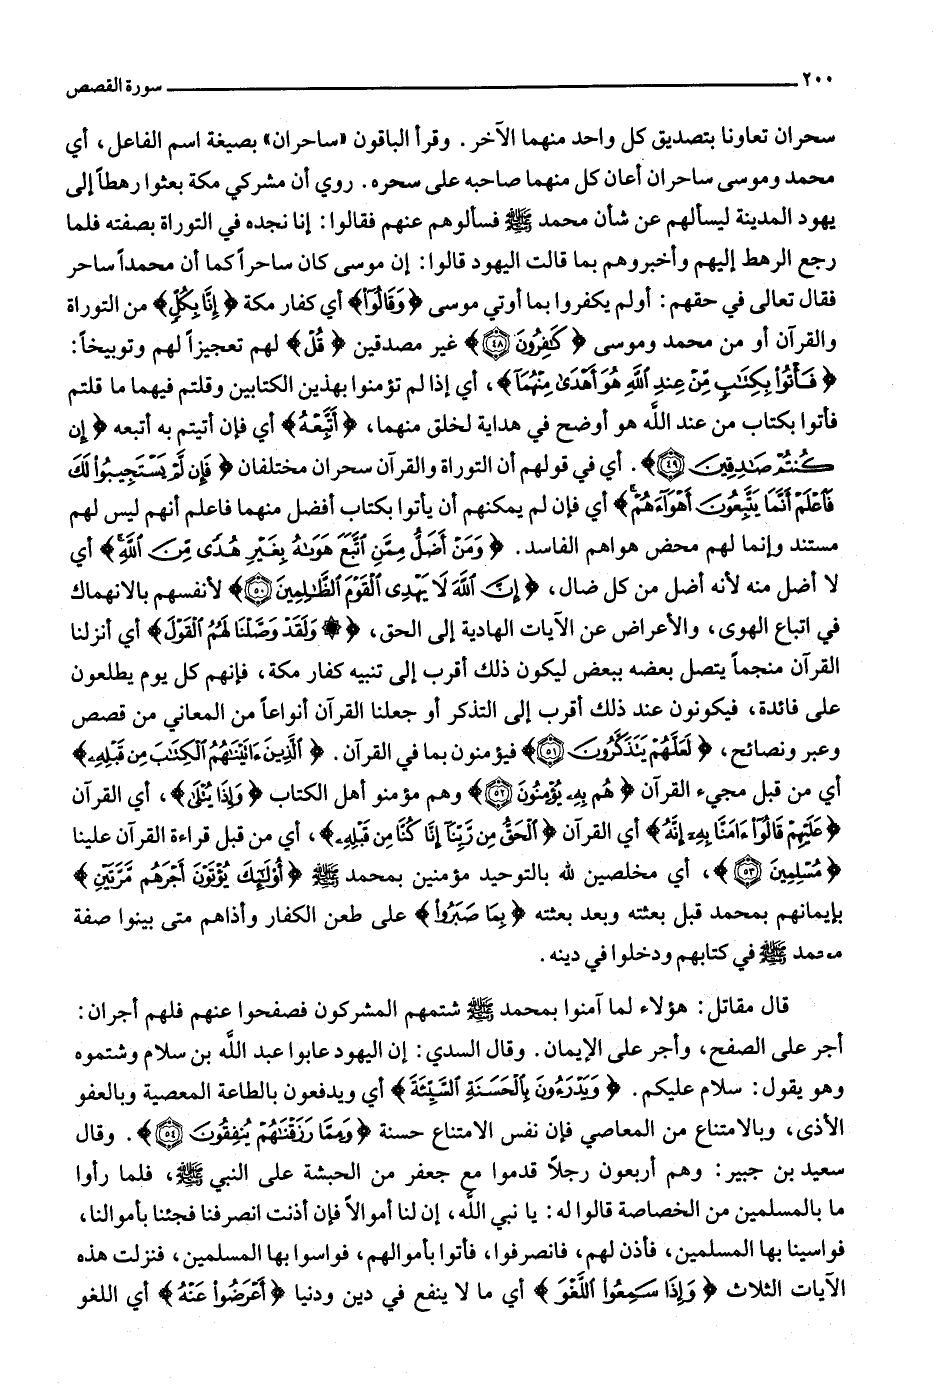 ٢٠٠ سورة القصص
سحران تعاونا بتصديق كل واحد منهما الآخر. وقرأ الباقون «ساحران» بصيغة اسم الفاعل، أي
محمد وموسى ساحران أعان كل منهما صاحبه على سحره. روي أن مشركي مكة بعثوا رهطاً إلى
يهود المدينة ليسألهم عن شأن محمد ﷺ فسألوهم عنهم فقالوا: إنا نجده في التوراة بصفته فلما
رجع الرهط إليهم وأخبروهم بما قالت اليهود قالوا: إن موسى كان ساحراً كما أن محمداً ساحر
فقال تعالى في حقهم: أولم يكفروا بما أوتي موسى ﴿وَقَالُوٓاْ﴾ أي كفار مكة ﴿إِنَّا بِكُلٍّ﴾ من التوراة
والقرآن أو من محمد وموسى ﴿كَٰفِرُونَ ٤٨﴾ غير مصدقين ﴿قُلْ﴾ لهم تعجيزاً لهم وتوبيخاً:
﴿فَأْتُواْ بِكِتَٰبٍ مِّنْ عِندِ ٱللَّهِ هُوَ أَهْدَىٰ مِنْهُمَآ﴾، أي إذا لم تؤمنوا بهذين الكتابين وقلتم فيهما ما قلتم
فأتوا بكتاب من عند اللَّه هو أوضح في هداية لخلق منهما، ﴿أَتَّبِعْهُ﴾ أي فإن أتيتم به أتبعه ﴿إِن
كُنتُمْ صَٰدِقِينَ ٤٩﴾. أي في قولهم أن التوراة والقرآن سحران مختلفان ﴿فَإِن لَّمْ يَسْتَجِيبُواْ لَكَ
فَٱعْلَمْ أَنَّمَا يَتَّبِعُونَ أَهْوَآءَهُمْ﴾ أي فإن لم يمكنهم أن يأتوا بكتاب أفضل منهما فاعلم أنهم ليس لهم
مستند وإنما لهم محض هواهم الفاسد. ﴿وَمَنْ أَضَلُّ مِمَّنِ ٱتَّبَعَ هَوَىٰهُ بِغَيْرِ هُدًى مِّنَ ٱللَّهِ﴾ أي
لا أضل منه لأنه أضل من كل ضال، ﴿إِنَّ ٱللَّهَ لَا يَهْدِى ٱلْقَوْمَ ٱلظَّٰلِمِينَ ٥٠﴾ لأنفسهم بالانهماك
في اتباع الهوى، والأعراض عن الآيات الهادية إلى الحق، ﴿۞ وَلَقَدْ وَصَّلْنَا لَهُمُ ٱلْقَوْلَ﴾ أي أنزلنا
القرآن منجماً يتصل بعضه ببعض ليكون ذلك أقرب إلى تنبيه كفار مكة، فإنهم كل يوم يطلعون
على فائدة، فيكونون عند ذلك أقرب إلى التذكر أو جعلنا القرآن أنواعاً من المعاني من قصص
وعبر ونصائح، ﴿لَعَلَّهُمْ يَتَذَكَّرُونَ ٥١﴾ فيؤمنون بما في القرآن. ﴿ٱلَّذِينَ ءَاتَيْنَٰهُمُ ٱلْكِتَٰبَ مِن قَبْلِهِۦ﴾
أي من قبل مجيء القرآن ﴿هُم بِهِۦ يُؤْمِنُونَ ٥٢﴾ وهم مؤمنو أهل الكتاب ﴿وَإِذَا يُتْلَىٰ﴾، أي القرآن
﴿عَلَيْهِمْ قَالُوٓاْ ءَامَنَّا بِهِۦٓ إِنَّهُ﴾ أي القرآن ﴿ٱلْحَقُّ مِن رَّبِّنَآ إِنَّا كُنَّا مِن قَبْلِهِۦ﴾، أي من قبل قراءة القرآن علينا
﴿مُسْلِمِينَ ٥٣﴾، أي مخلصين لله بالتوحيد مؤمنين بمحمد ﷺ ﴿أُوْلَٰٓئِكَ يُؤْتَوْنَ أَجْرَهُم مَّرَّتَيْنِ﴾
بإيمانهم بمحمد قبل بعثته وبعد بعثته ﴿بِمَا صَبَرُواْ﴾ على طعن الكفار وأذاهم متى بينوا صفة
محمد ﷺ في كتابهم ودخلوا في دينه.
قال مقاتل: هؤلاء لما آمنوا بمحمد ﷺ شتمهم المشركون فصفحوا عنهم فلهم أجران:
أجر على الصفح، وأجر على الإيمان. وقال السدي: إن اليهود عابوا عبد اللَّه بن سلام وشتموه
وهو يقول: سلام عليكم. ﴿وَيَدْرَءُونَ بِٱلْحَسَنَةِ ٱلسَّيِّئَةَ﴾ أي ويدفعون بالطاعة المعصية وبالعفو
الأذى، وبالامتناع من المعاصي فإن نفس الامتناع حسنة ﴿وَمِمَّا رَزَقْنَٰهُمْ يُنفِقُونَ ٥٤﴾. وقال
سعيد بن جبير: وهم أربعون رجلاً قدموا مع جعفر من الحبشة على النبي ﷺ، فلما رأوا
ما بالمسلمين من الخصاصة قالوا له: يا نبي اللَّه، إن لنا أموالاً فإن أذنت انصرفنا فجئنا بأموالنا،
فواسينا بها المسلمين، فأذن لهم، فانصرفوا، فأتوا بأموالهم، فواسوا بها المسلمين، فنزلت هذه
الآيات الثلاث ﴿وَإِذَا سَمِعُواْ ٱللَّغْوَ﴾ أي ما لا ينفع في دين ودنيا ﴿أَعْرَضُواْ عَنْهُ﴾ أي اللغو